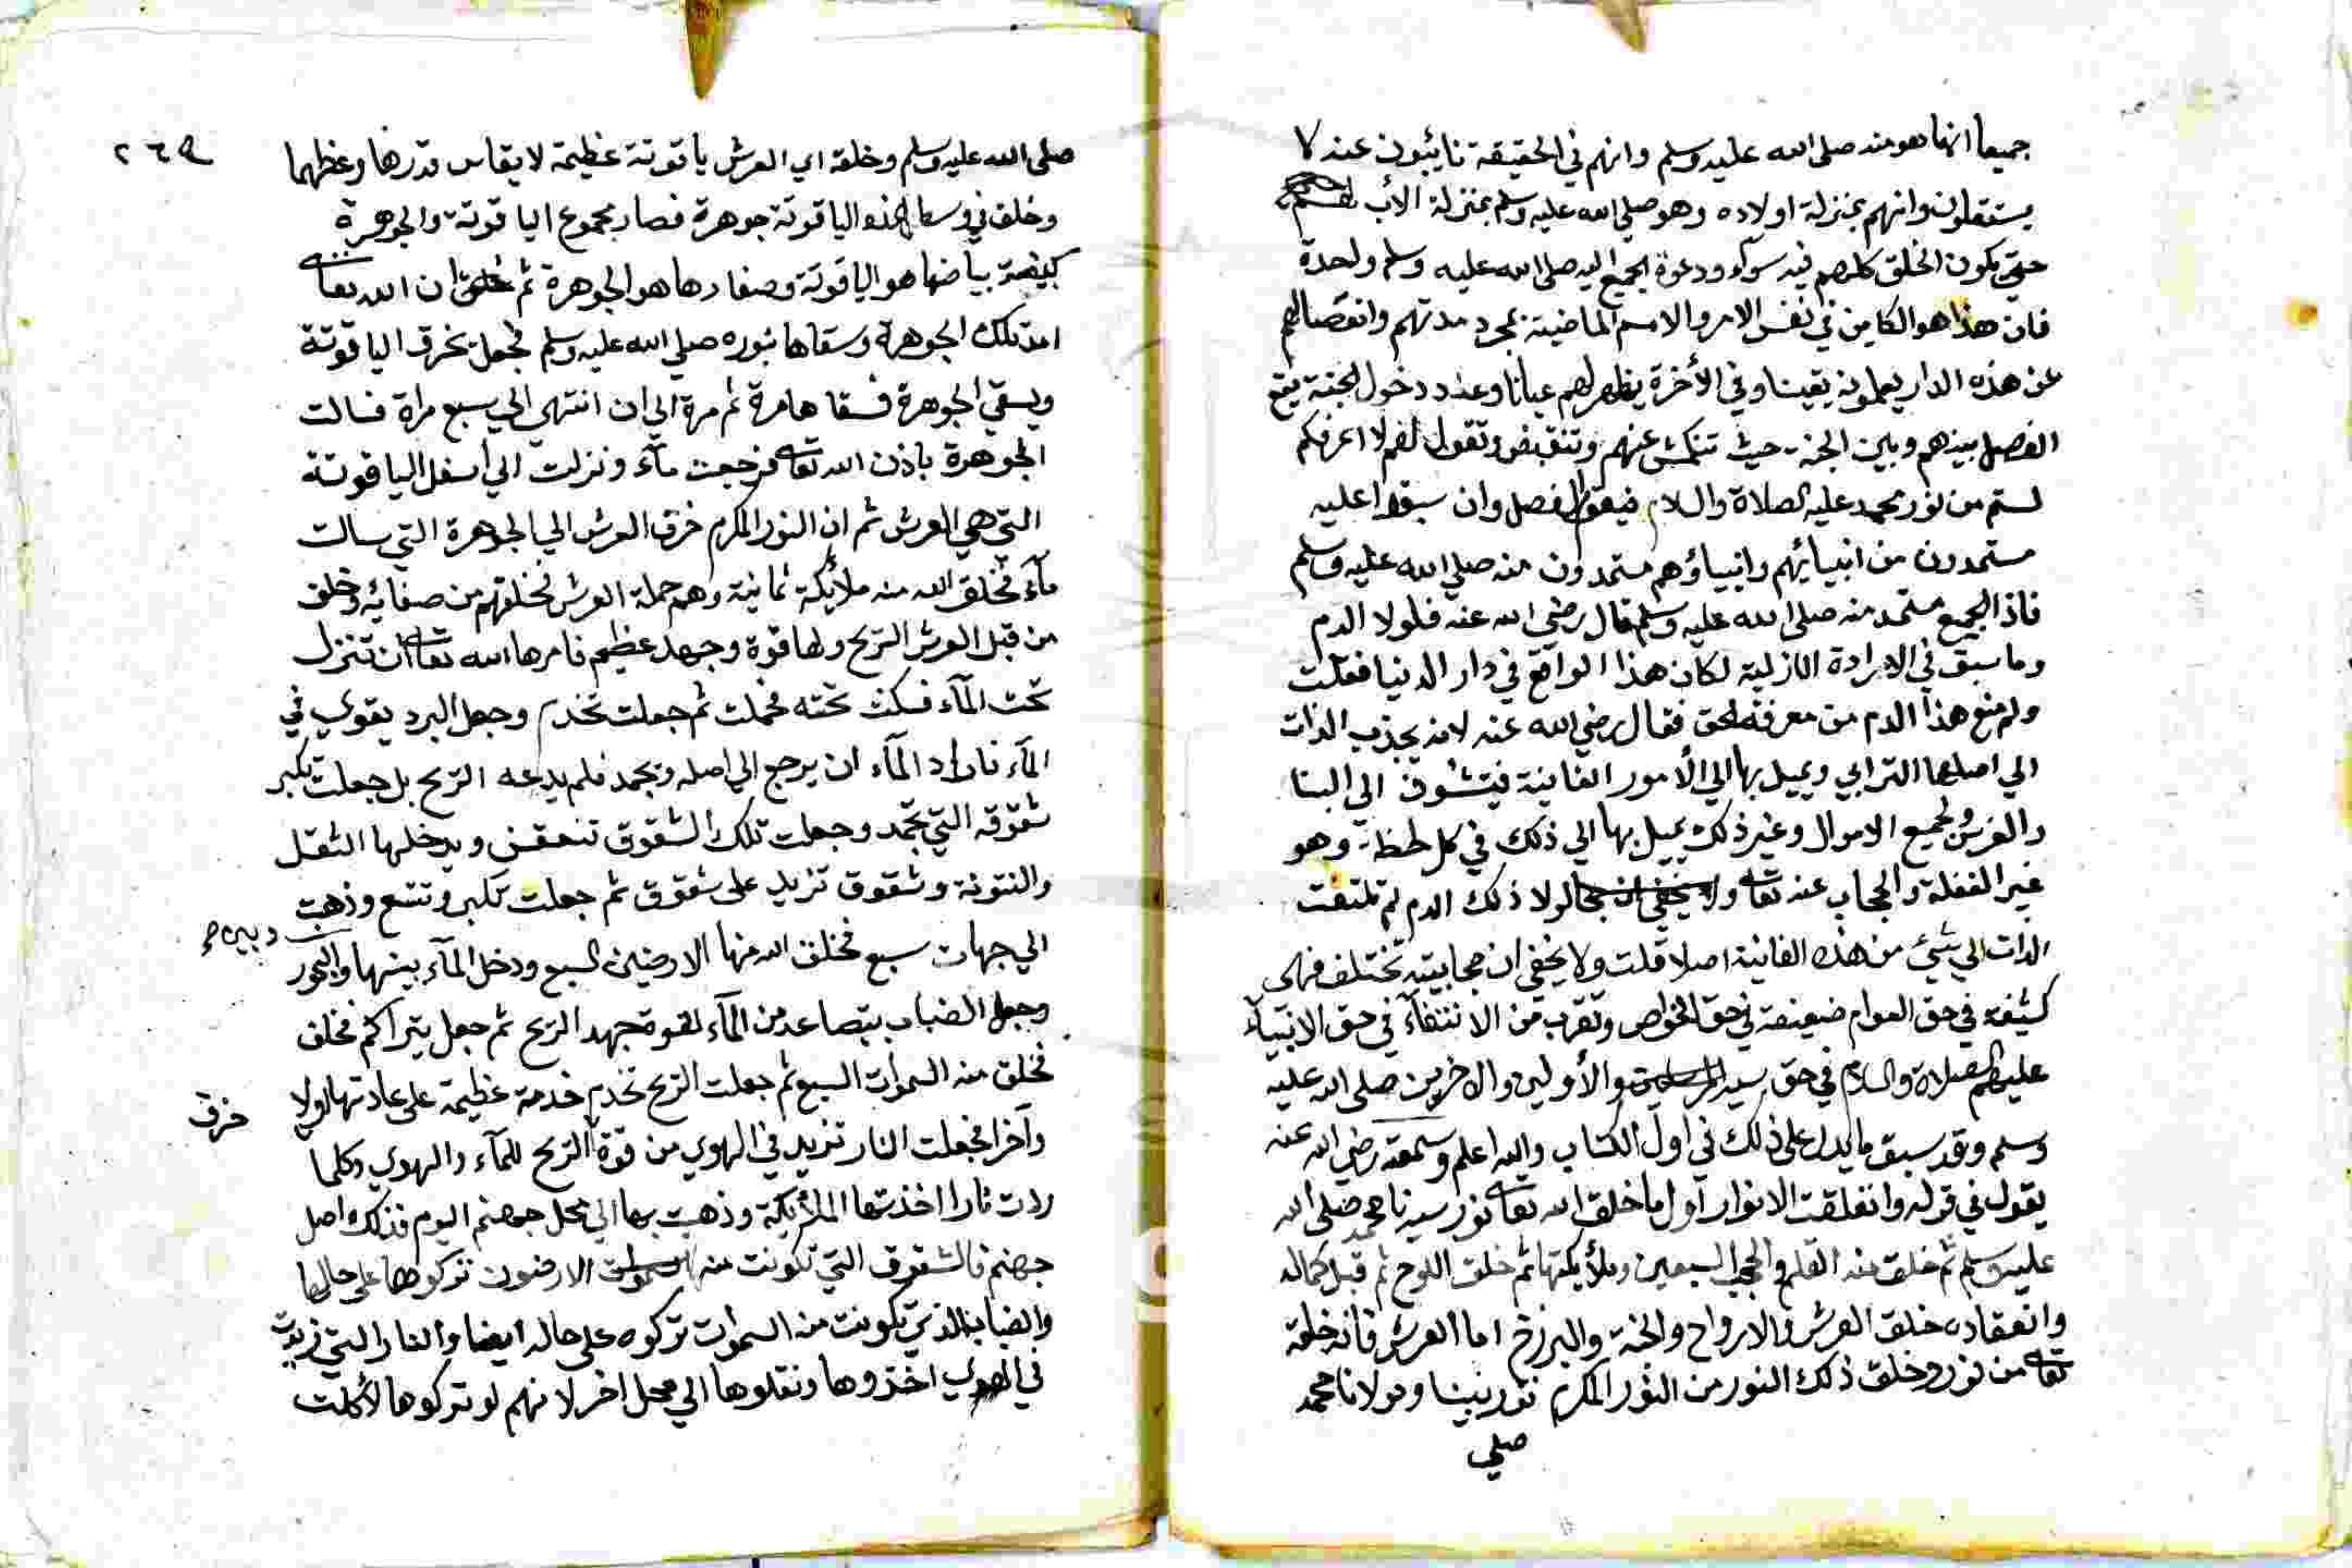 جميعا انما هو منه صلى الله عليه وسلم وانهم في الحقيقة نائبون عنه لا
يستقلون وانهم بمنزلة اولاده وهو صلى الله عليه وسلم بمنزلة الأب
حتى يكون الخلق كلهم فيه سوآء ودعوة الجميع اليه صلى الله عليه وسلم واحدة
فان هذا هو الكاين في نفس الامر والامم الماضية بمجرد مدتهم وانفصالهم
عن هذه الدار يعلمونه يقينا وفي الأخرة يظهر لهم عيانا وعند دخول الجنة يقع
الفصل بينهم وبين الجنة حيث تنكمش عنهم وتنقبض وتقول لهم لا اعرفكم
لستم من نور محمد عليه الصلاة والسلام فيقع الفصل وان سبقوا عليه
مستمدون من انبيائهم وانبياؤهم مستمدون منه صلى الله عليه وسلم
فاذا الجميع مستمد منه صلى الله عليه وسلم قال رضي الله عنه فلولا الدم
وما سبق في الارادة الازلية لكان هذا الواقع في دار الدنيا فقلت
ولم منع هذا الدم من معرفة الحق فقال رضي الله عنه لانه يجذب الذات
الي اصلها الترابي ويميل بها الي الأمور الفانية فيتشوف الي البنا
والغرس ولجميع الاموال وغير ذلك يميل بها الي ذلك في كل لحظة وهو
غير الغفلة والحجاب عنه تعالى ولولا ذلك الدم لم تلتفت
الذات الي شيئ من هذه الفانية اصلا قلت ولا يخفى ان حجابيته تختلف فهي
كثيفة في حق العوام ضعيفة في حق الخواص وتقرب من الانتفآء في حق الانبيآء
عليهم الصلاة والسلام في حق سيد الأولين والاخرين صلى الله عليه
وسلم وقد سبق ما يدل على ذلك في اول الكتاب والله اعلم وسمعته رضي الله عنه
يقول في قوله وانفلقت الانوار اول ما خلق الله تعالى نور سيدنا محمد صلى الله
عليه وسلم ثم خلق منه القلم والحجب السبعين وملأيكتها ثم خلق اللوح ثم قبل كماله
وانعقاده خلق العرش والارواح والجنة والبرزخ اما العرش فانه خلقه
تعالى من نور وخلق ذلك النور من النور المكرم نور نبينا ومولانا محمد
صلي
٢٦٩
صلى الله عليه وسلم وخلقه اي العرش ياقوتة عظيمة لا يقاس قدرها وعظمها
وخلق في وسط هذه الياقوتة جوهرة فصار مجموع الياقوتة والجوهرة
كبيضة بياضها هو الياقوتة وصفارها هو الجوهرة ثم ان الله تعالى
امد تلك الجوهرة وسقاها بنوره صلى الله عليه وسلم فجعل يخرق الياقوتة
ويسقي الجوهرة فسقاها مرة ثم مرة الي ان انتهي الي سبع مراة فسالت
الجوهرة باذن الله تعالى فرجعت مآء ونزلت الي أسفل الياقوتة
التي هي العرش ثم ان النور المكرم خرق العرش الي الجوهرة التي سالت
مآء فخلق الله منه ملائكة ثمانية وهم حملة العرش فخلقهم من صفائه وخلق
من قبل العرش الريح ولها قوة وجهد عظيم فامرها الله تعالى ان تنزل
تحت المآء فسكنت تحته فحملته ثم جعلت تخدم وجعل البرد يقوي في
المآء فاراد المآء ان يرجع الي اصله ويجمد فلم يدعه الريح بل جعلت تكبر
شقوقه التي تجمد وجعلت تلك الشقوق تنعفن ويدخلها الثقل
والنتونة وشقوق تزيد على شقوق ثم جعلت تكبر وتتسع وذهبت
الي جهات سبع فخلق الله منها الارضين السبع ودخل المآء بينها والبحور
وجعل الضباب يتصاعد من المآء لقوة جهد الريح ثم جعل يتراكم فخلق
فخلق منه السموات السبع ثم جعلت الريح تخدم خدمة عظيمة على عادتها اولا
وآخرا فجعلت النار تزيد في الهوي من قوة الريح للمآء والهوي وكلما
خرق
زادت نارا اخذتها الملأيكة وذهبت بها الي محل جهنم اليوم فذلك اصل
جهنم فالشقوق التي تكونت منها الارضون تركوها على حالها
والضباب الذي تكونت منه السموات تركوه على حاله ايضا والنار التي زيدت
في الهوي اخذوها ونقلوها الي محل اخر لانهم لو تركوها لأكلت